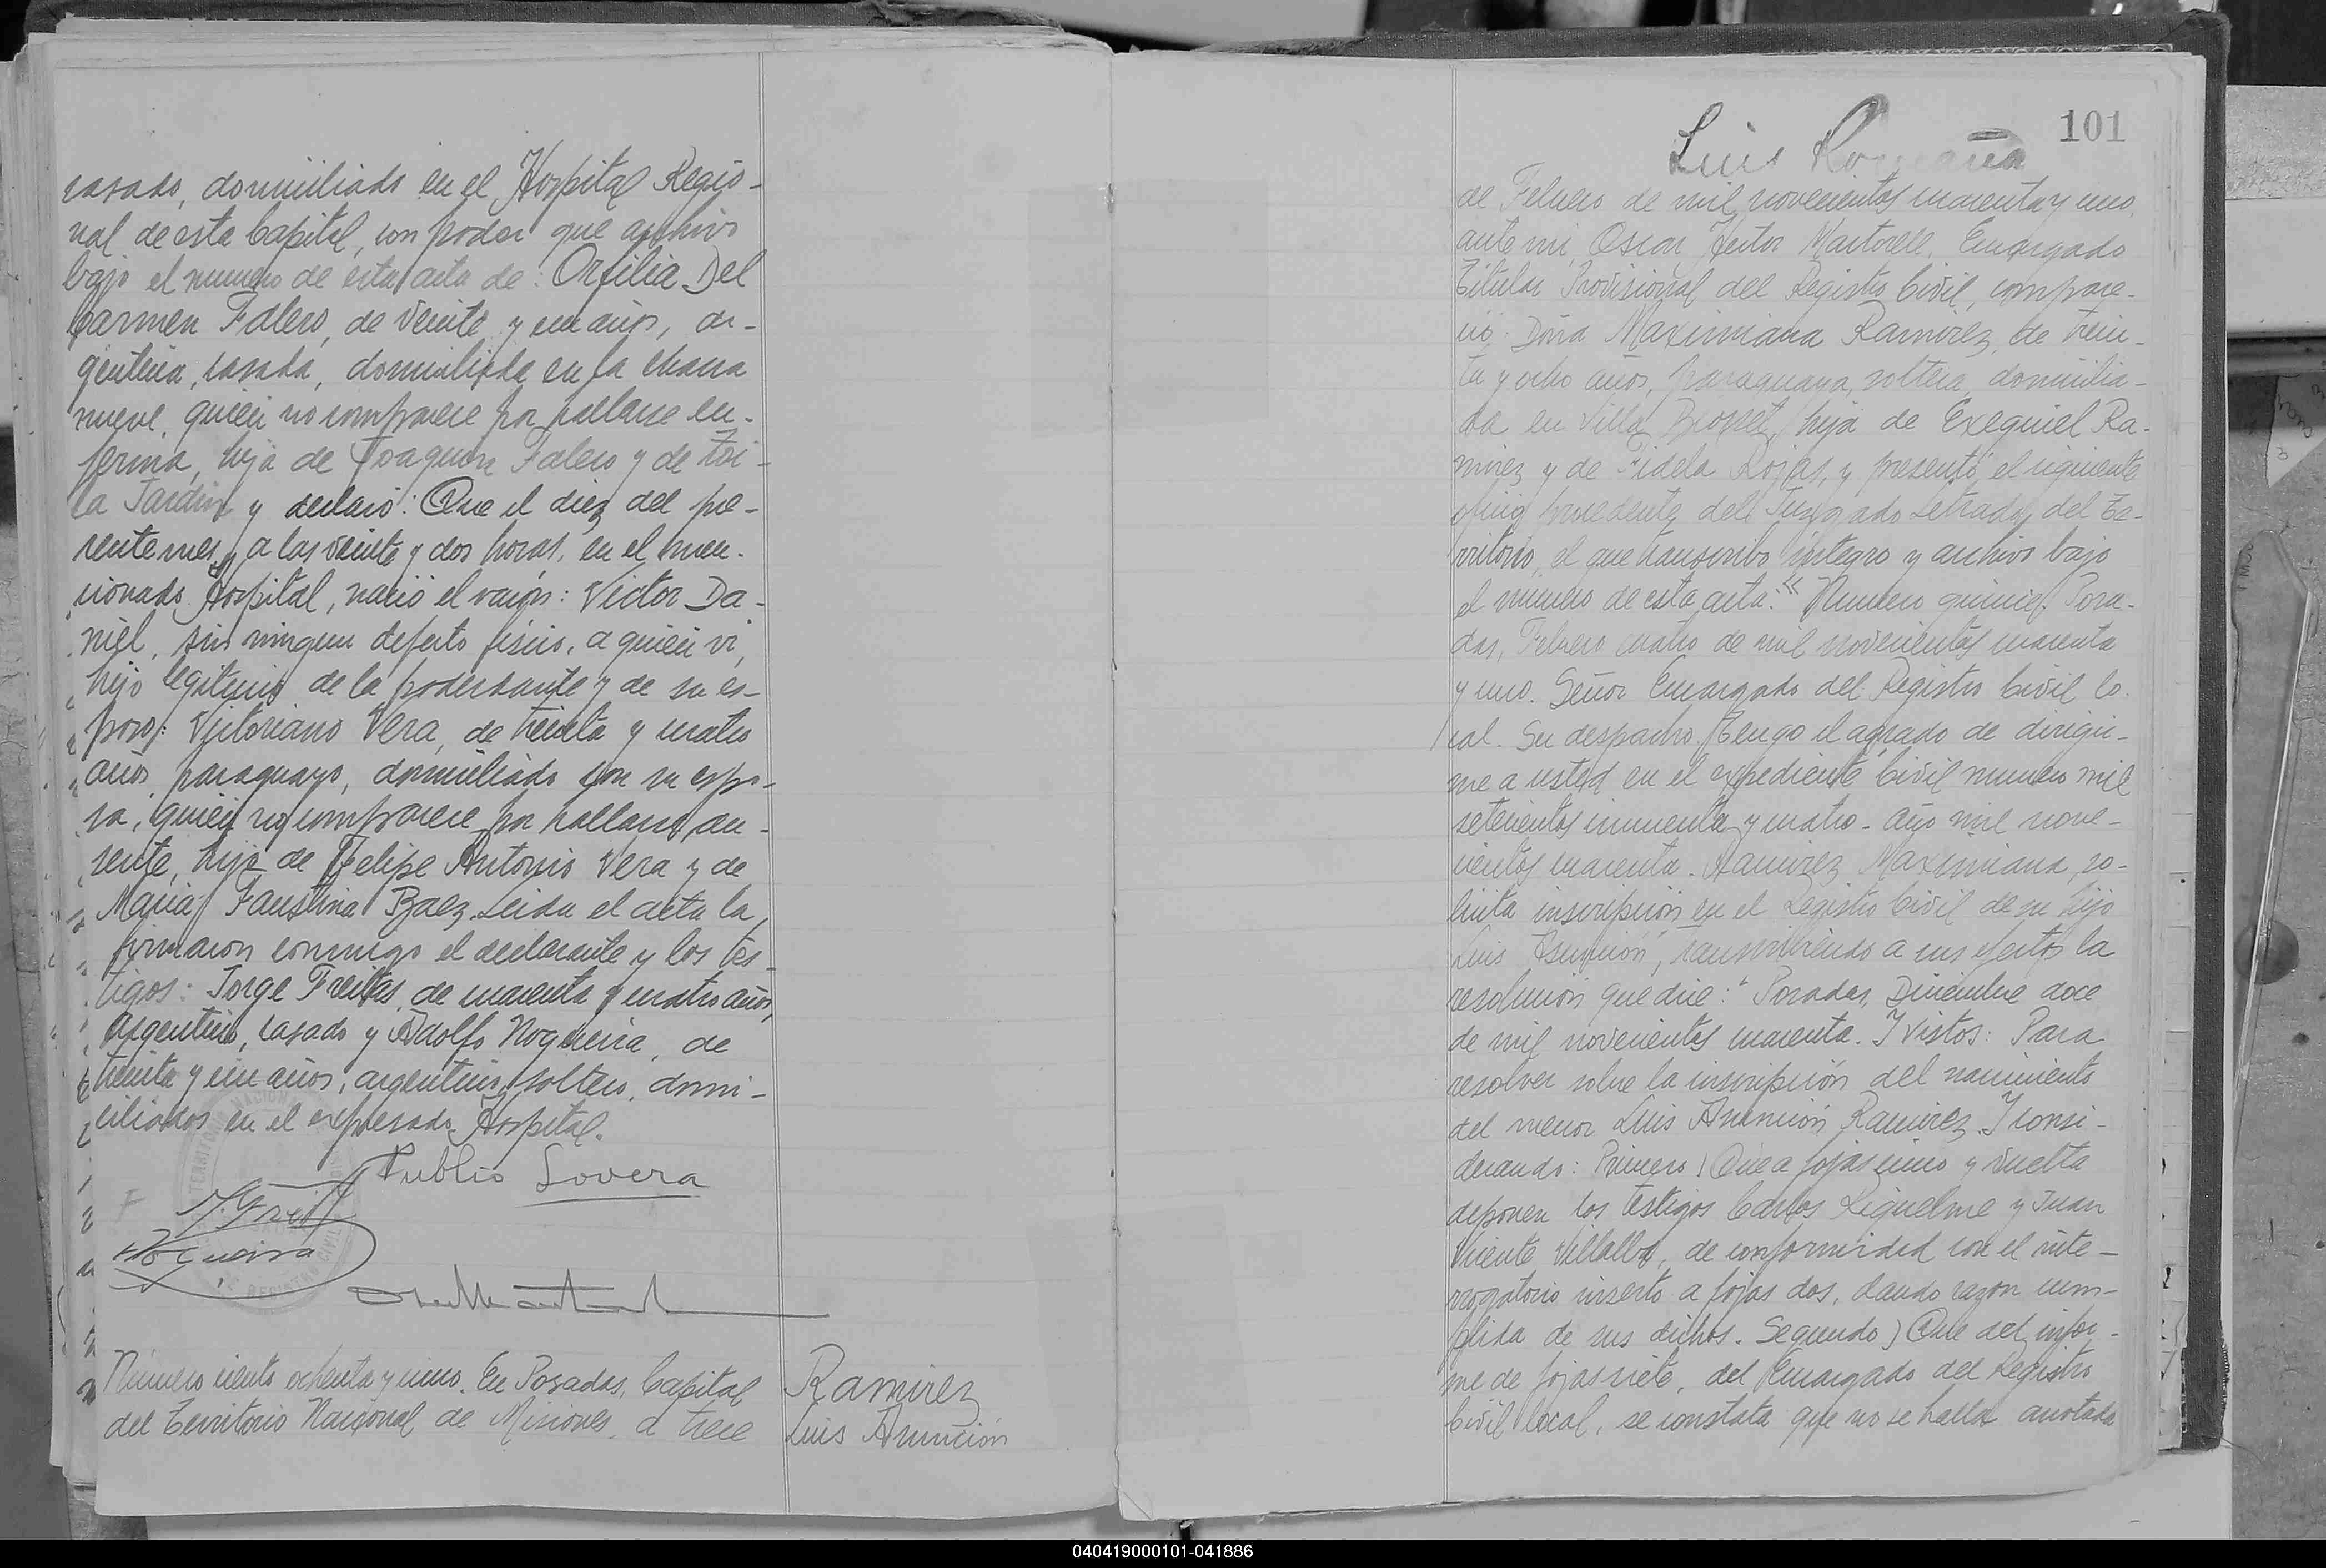 casado, domiciliado en el Hospital Regio-
nal de esta Capital, con poder que archivo
bajo el numero de esta acta de: Orfilia Del
Carmen Falero, de veinte y un años, ar-
gentina, casada, domiciliada en la chacra
nueve, quien no comparece por hallarse en-
ferma, hija de Joaquin Falero y de Zoi-
la Jardin y declaró: Que el diez del pre-
sente mes, a las veinte y dos horas, en el men-
cionado Hospital, nació el varón: Victor Da-
niel, sin ningun defecto fisico, a quien vi,
hijo legitimo de la poderdante y de su es-
poso: Victoriano Vera, de treinta y cuatro
años, paraguayo, domiciliado con su espo-
sa, quien no comparece por hallarse au-
sente, hijo de Felipe Antonio Vera y de
Maria Faustina Baez. Leida el acta la
firmaron conmigo el declarante y los tes-
tigos: Jorge Freitas, de cuarenta y cuatro años,
argentino, casado y Adolfo Nogueira, de
treinta y un años, argentino, soltero, domi-
ciliados en el expresado Hospital.
Publio Lovera
Nogueira
Número ciento ochenta y cinco. En Posadas, Capital
del Territorio Nacional de Misiones, a trece
Ramirez
Luis Asunción
101
Luis Romaña
de Febrero de mil novecientos cuarenta y uno,
ante mi, Oscar Hector Martorell, Encargado
Titular Provisional del Registro Civil, compare-
ció: Doña Maximiana Ramirez, de trein-
ta y ocho años, paraguaya, soltera, domicilia-
da en Villa Blosset, hija de Exequiel Ra-
mirez y de Fidela Rojas, y presentó el siguiente
oficio procedente del Juzgado Letrado del Te-
rritorio, el que transcribo integro y archivo bajo
el numero de esta acta: "Numero quince. Posa-
das, Febrero cuatro de mil novecientos cuarenta
y uno. Señor Encargado del Registro Civil lo-
cal. Su despacho. Tengo el agrado de dirigir-
me a usted en el expediente Civil numero mil
setecientos cincuenta y cuatro - año mil nove-
cientos cuarenta. Ramirez Maximiana, so-
licita inscripción en el Registro Civil de su hijo
Luis Asunción", transcribiendo a sus efectos la
resolucion que dice: "Posadas, Diciembre doce
de mil novecientos cuarenta. Y Vistos: Para
resolver sobre la inscripción del nacimiento
del menor Luis Asunción Ramirez. Y consi-
derando: Primero) Que a fojas cinco y vuelta
deponen los testigos Carlos Riquelme y Juan
Vicente Villalba, de conformidad con el inte-
rrogatorio inserto a fojas dos, dando razon cum-
plida de sus dichos. Segundo) Que del infor-
me de fojas siete, del Encargado del Registro
Civil local, se constata que no se halla anotada
040419000101-041886